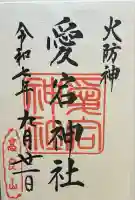 火防神
愛宕神社
令和七年九月廿一日
愛宕神社